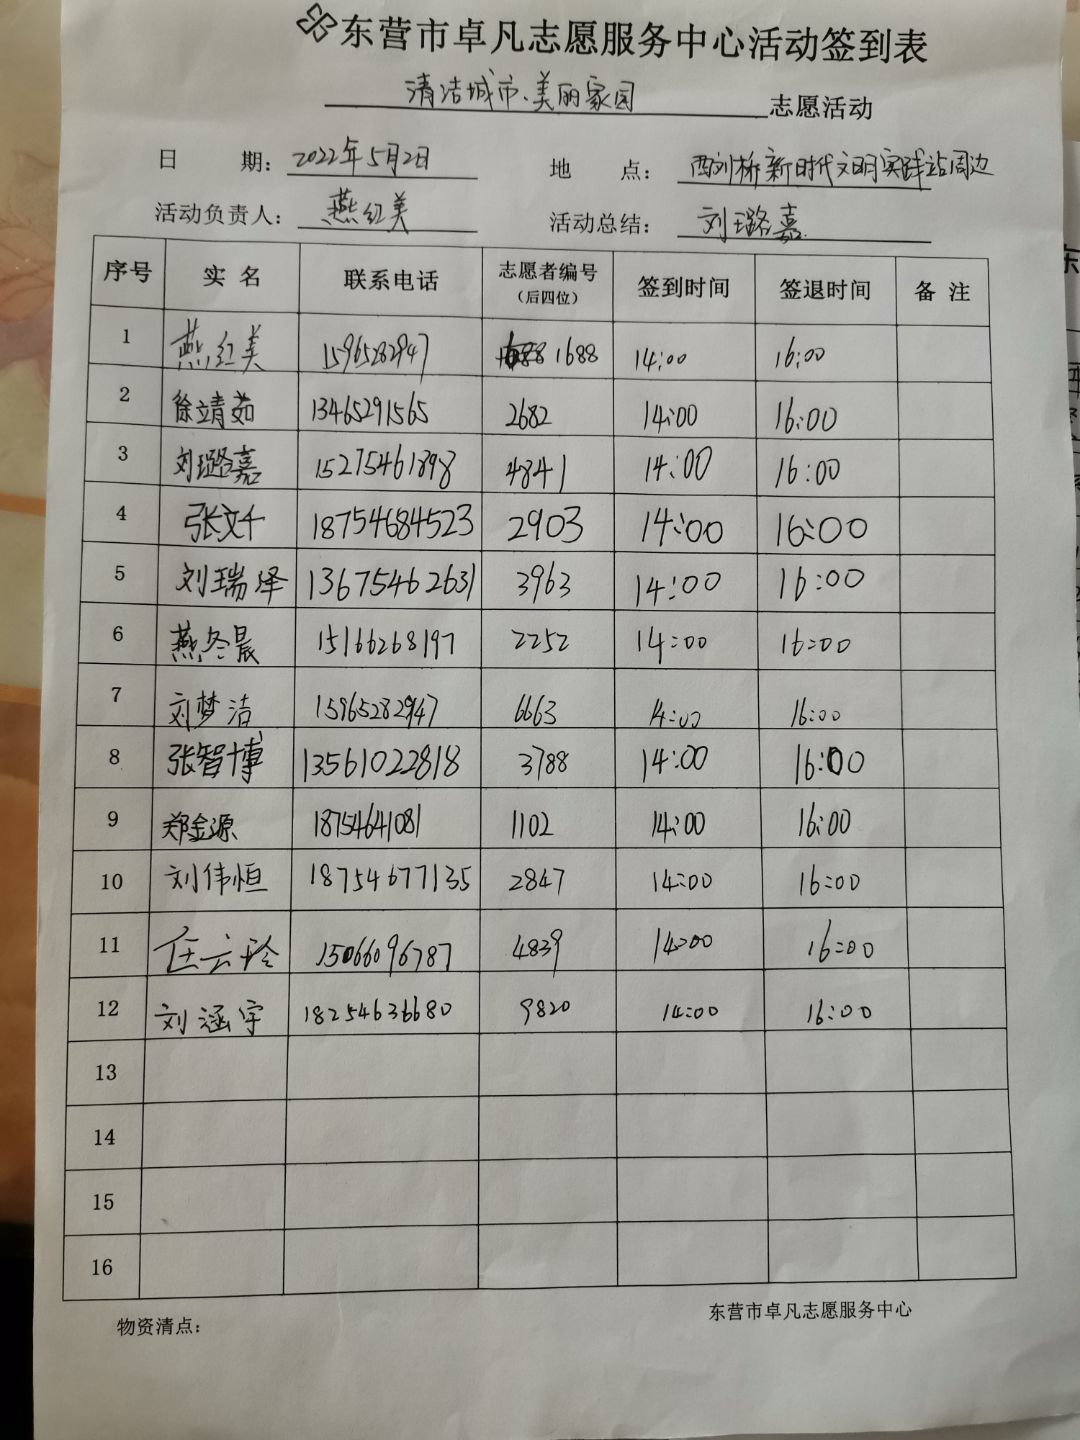 东营市卓凡志愿服务中心活动签到表
清洁城市、美丽家园 志愿活动
日 期： 2022年5月2日 地 点： 西刘桥新时代文明实践站周边
活动负责人： 燕红美 活动总结： 刘璐嘉
序号 实名 联系电话 志愿者编号（后四位） 签到时间 签退时间 备注
1 燕红美 15965282947 1688 14:00 16:00
2 徐靖茹 13465291565 2682 14:00 16:00
3 刘璐嘉 15275461898 4841 14:00 16:00
4 张文千 18754684523 2903 14:00 16:00
5 刘瑞泽 13675462631 3963 14:00 16:00
6 燕冬晨 15166268197 2252 14:00 16:00
7 刘梦洁 15965282947 6663 14:00 16:00
8 张智博 13561022818 3788 14:00 16:00
9 郑金源 18754641081 1102 14:00 16:00
10 刘伟恒 18754677135 2847 14:00 16:00
11 任云玲 15066096787 4839 14:00 16:00
12 刘涵宇 18254636680 9820 14:00 16:00
13
14
15
16
物资清点： 东营市卓凡志愿服务中心